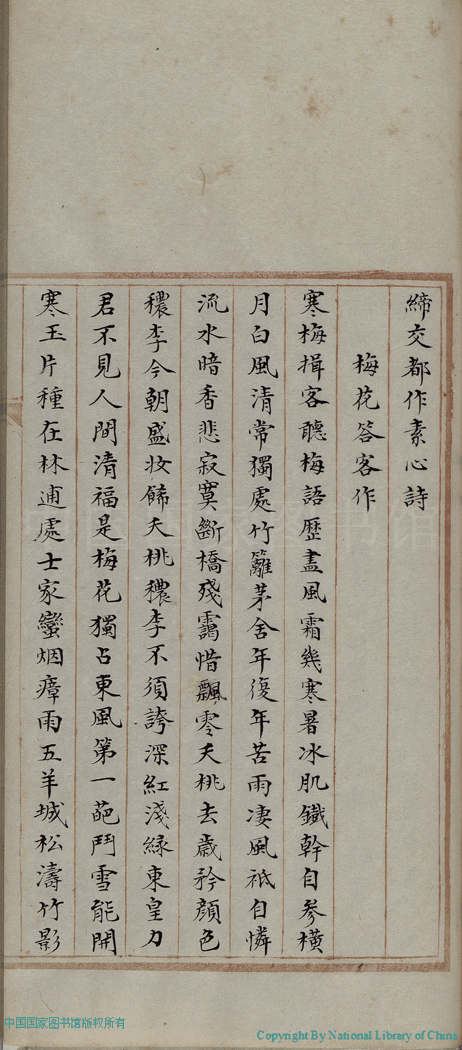 締交都作素心詩
梅花答客作
寒梅揖客聽梅語歷盡風霜幾寒暑冰肌鐵幹自參橫
月白風清常獨處竹籬茅舍年復年苦雨凄風祇自憐
流水暗香悲寂寞斷橋殘靄惜飄零夭桃去歲矜顏色
穠李今朝盛妝餙夭桃穠李不須誇深紅淺緑東皇力
君不見人間清福是梅花獨占東風第一葩鬥雪能開
寒玉片種在林逋處士家蠻烟瘴雨五羊城松濤竹影
中国国家图书馆版权所有
Copyright By National Library of China